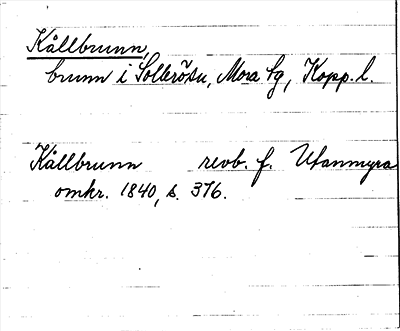 Källbrunn,
brunn i Sollerö sn, Mora fg, Kopp. l.
Källbrunn revb. f. Utanmyra
omkr. 1840, s. 376.